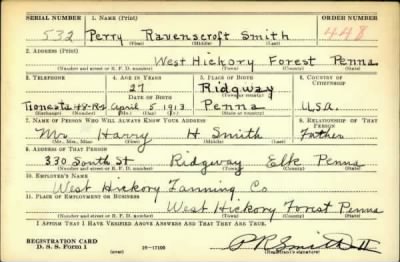 SERIAL NUMBER 1. NAME (Print) ORDER NUMBER
532 Perry Ravenscroft Smith 448
(First) (Middle) (Last)
2. ADDRESS (Print)
West Hickory Forest Penna
(Number and street or R. F. D. number) (Town) (County) (State)
3. TELEPHONE 4. AGE IN YEARS 5. PLACE OF BIRTH 6. COUNTRY OF CITIZENSHIP
27 Ridgway
DATE OF BIRTH (Town or county)
Tionesta 48-R2 April 5 1913 Penna U.S.A.
(Exchange) (Number) (Mo.) (Day) (Yr.) (State or country)
7. NAME OF PERSON WHO WILL ALWAYS KNOW YOUR ADDRESS 8. RELATIONSHIP OF THAT PERSON
Mr Harry H Smith Father
(Mr., Mrs., Miss) (First) (Middle) (Last)
9. ADDRESS OF THAT PERSON
330 South St Ridgway Elk Penna
(Number and street or R. F. D. number) (Town) (County) (State)
10. EMPLOYER'S NAME
West Hickory Tanning Co
11. PLACE OF EMPLOYMENT OR BUSINESS
West Hickory Forest Penna
(Number and street or R. F. D. number) (Town) (County) (State)
I AFFIRM THAT I HAVE VERIFIED ABOVE ANSWERS AND THAT THEY ARE TRUE.
REGISTRATION CARD
D. S. S. Form 1 16-17105 P R Smith II
(Registrant's signature)